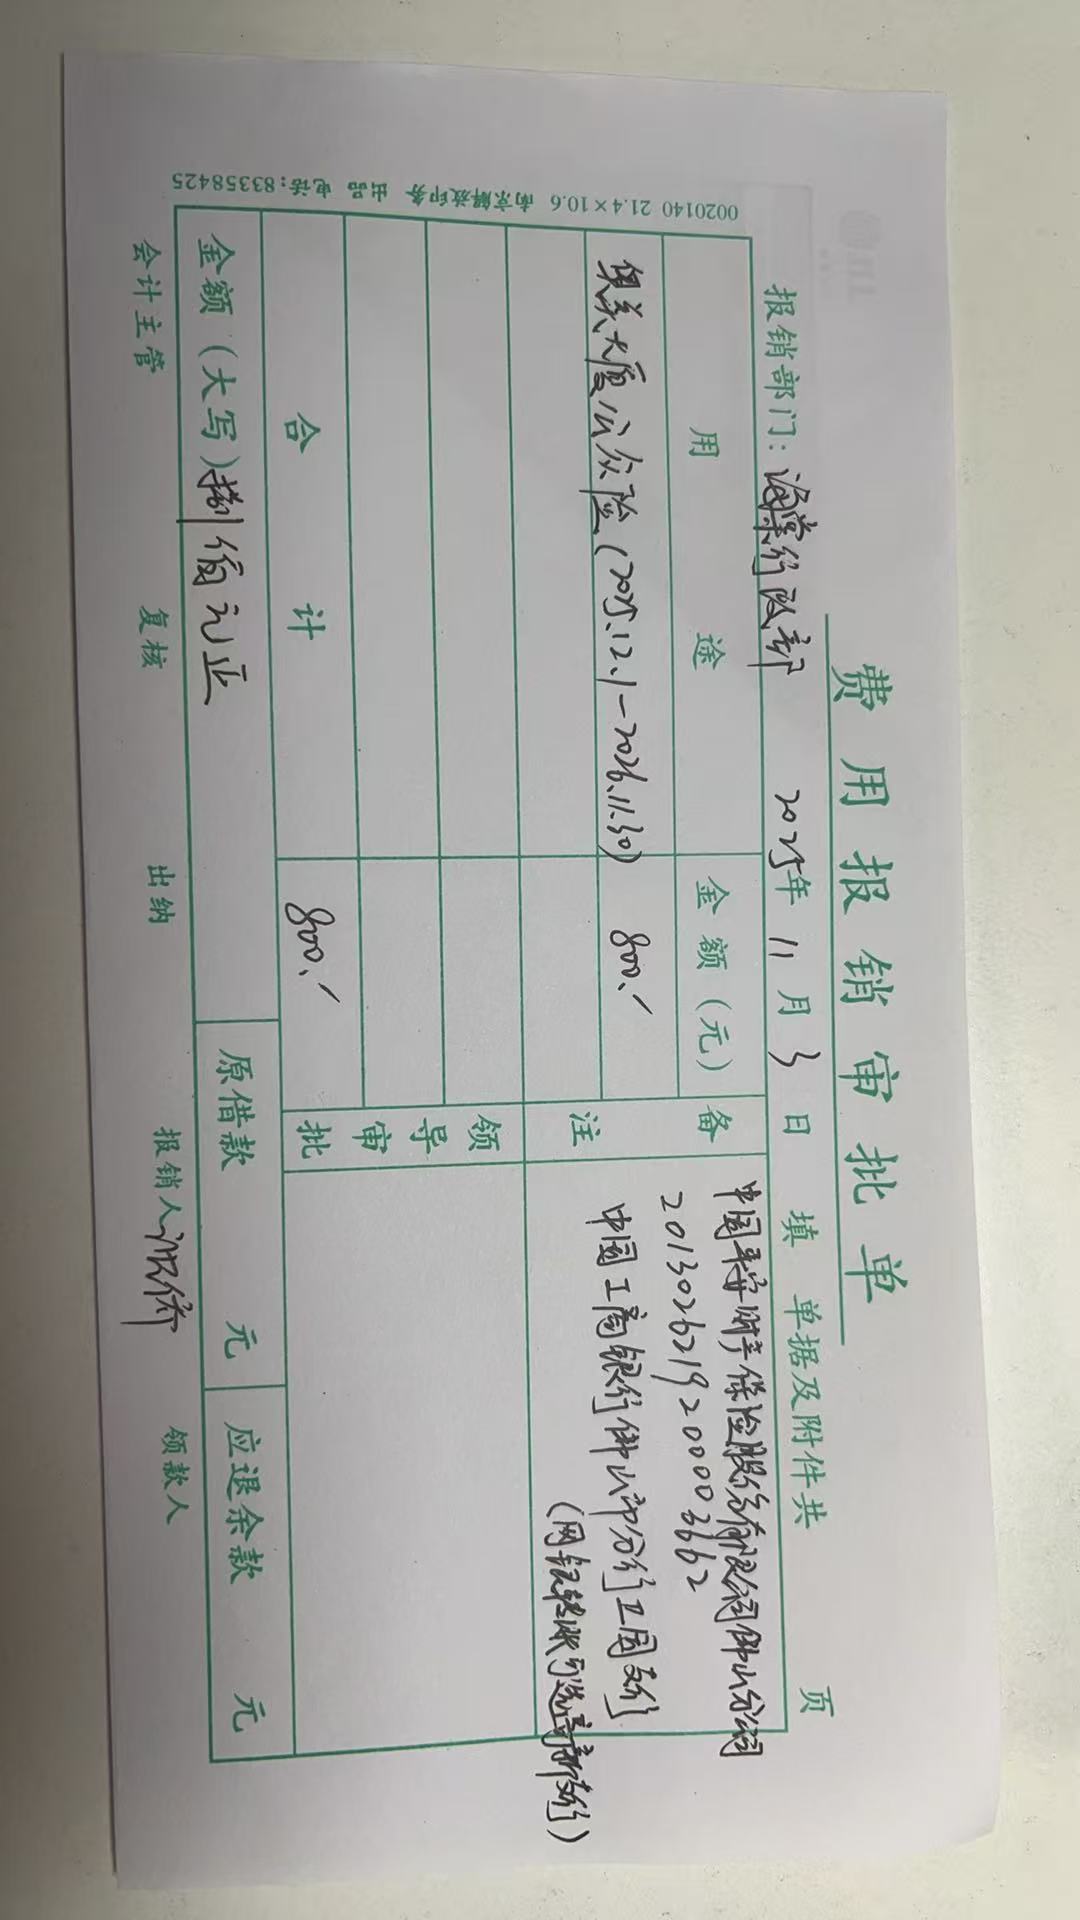 费用报销审批单
报销部门：海棠行政部 2025年11月3日填 单据及附件共 页
用途 金额（元） 备注
奥美大厦公众险（2025.12.1-2026.11.30） 800.
中国平安财产保险股份有限公司佛山分公司
2013026219200003662
中国工商银行佛山市分行工园支行
（网银转账可选高新支行）
合计 800.
领导审批
金额（大写）捌佰元正 原借款 元 应退余款 元
会计主管 复核 出纳 报销人 领款人
0020140 21.4×10.6 南京解放印务 出品 电话：83358425